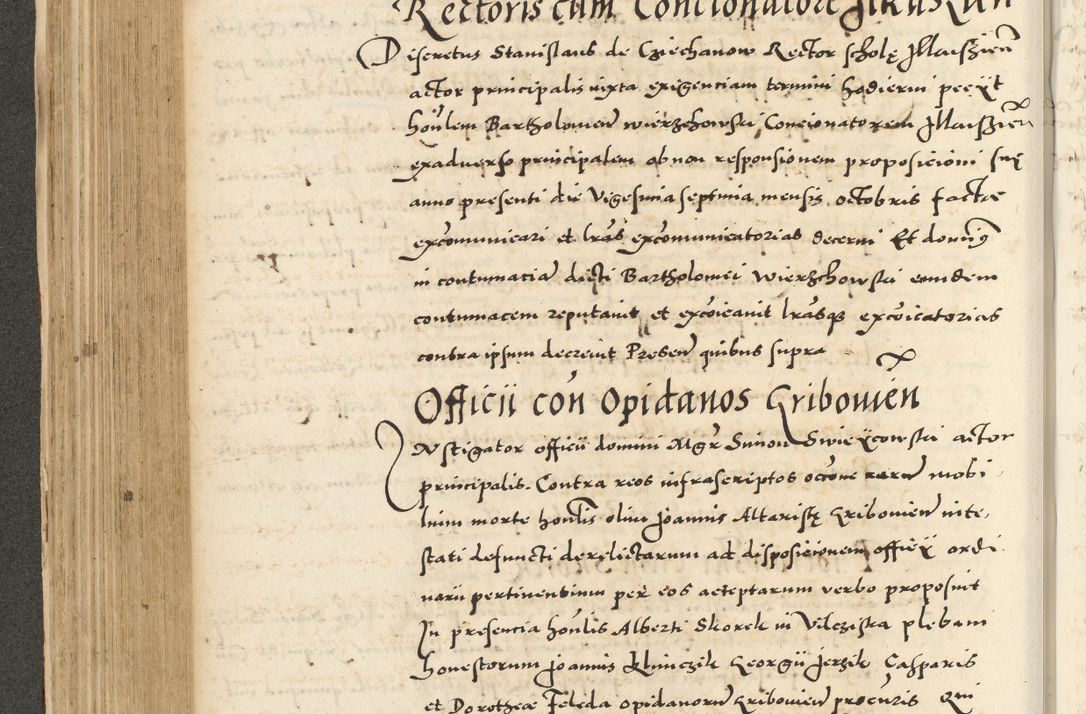 Rectoris cum Concionatore Ilkuszien
Discretus Stanislaus de Cziechanow Rector scholę Illkuszień
actor principalis iuxta exigenciam termini hodierni peciit
hońlem Bartholomeuḿ wierzchowski Concionatorem Illkuszień
exadverso principalem ob non responsionem proposicioni suę
anno presenti die Vigesima septima mensis octobris factæ
excōmunicari et lrãs excōmunicatorias decerni Et dominꝰ
in contumaciã dicti Bartholomei wierzchowski eundem
contumacem reputavit et excōicavit lrãsqꝫ excōicatorias
contra ipsum decrevit Preseñ quibus supra
Officii con Opidanos Gribovień
INstigator officii domini Mgr̃ Simon Swieÿcowski actor
principalis. Contra reos infrascriptos occōne rerũ mobi
lium morte honl̃is olim Joannis Altaristę Gribovień inte
stati defuncti derelictarum ad disposicionem officÿ ordi
narii pertinentium per eos acceptarum verbo proposuit
In presencia honl̃is Alberti Skorek in Vilcziska plebani
honestorum Joannis Klimczik Georgii Jerzik Casparis
et Dorotheæ Feleda opidanorũ Gribovień procuris Qui